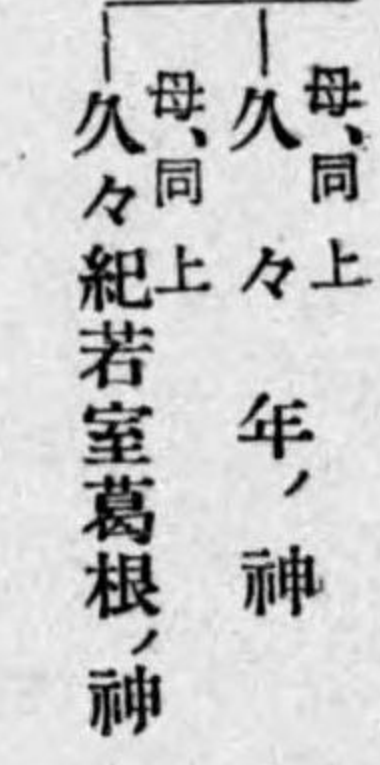 母、同上
久々年ノ神
母、同上
久々紀若室葛根ノ神